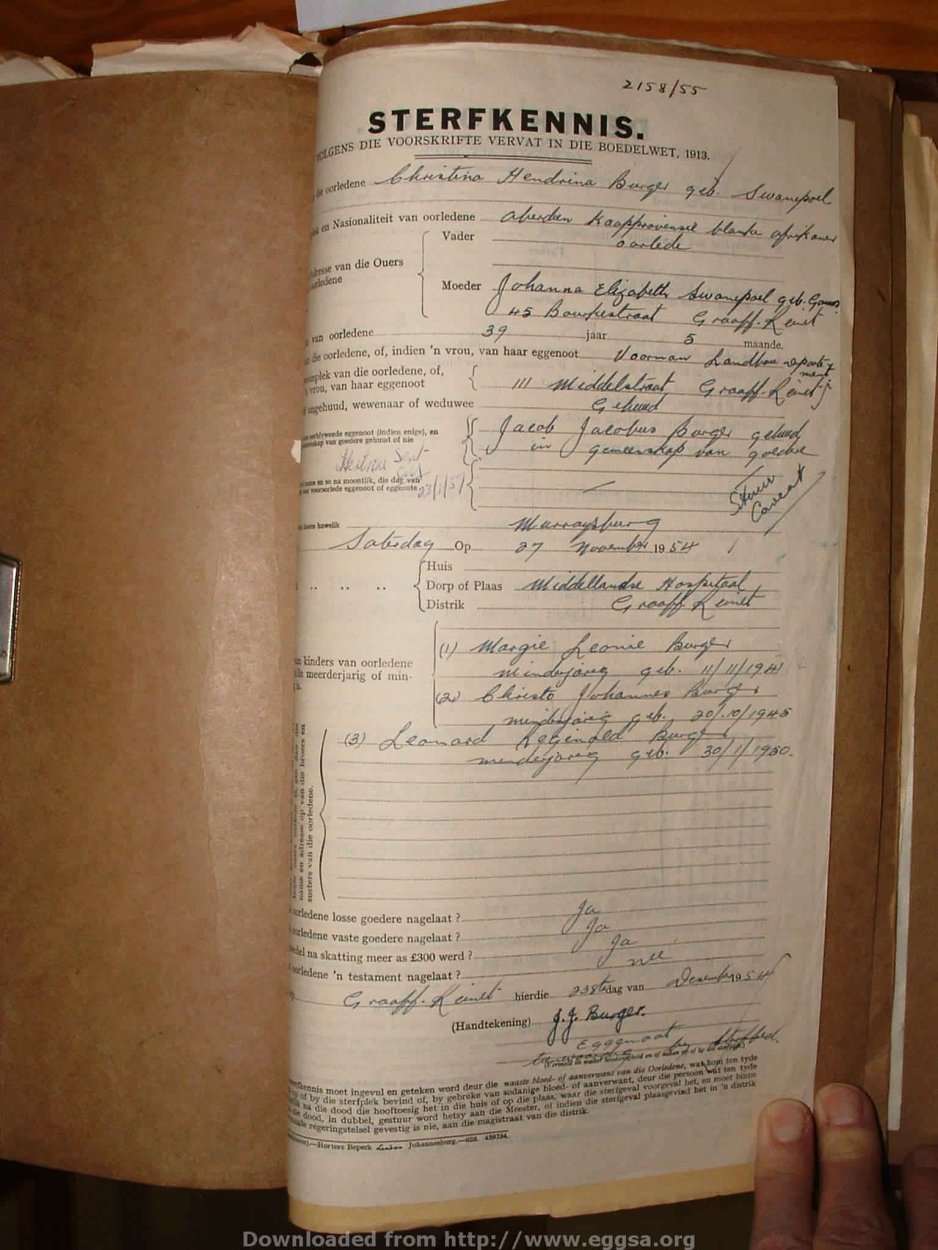 2158/55
STERFKENNIS.
VOLGENS DIE VOORSKRIFTE VERVAT IN DIE BOEDELWET, 1913.
die oorledene Christina Hendrina Burger geb. Swanepoel
en Nasionaliteit van oorledene Aberdeen Kaapprovinsie blanke afrikaner
Vader oorlede
Adresse van die Ouers
oorledene
Moeder Johanna Elizabeth Swanepoel geb. Gouws
45 Bourkestraat Graaff-Reinet
van oorledene 39 jaar 5 maande.
die oorledene, of, indien 'n vrou, van haar eggenoot Voorman Landbou departe-
ment
van die oorledene, of,
vrou, van haar eggenoot 111 Middelstraat Graaff-Reinet
ongehuud, wewenaar of weduwee Gehuud
eggenoot (indien enige), en
van goedere gehuud of nie
Jacob Jacobus Burger gehuud
in gemeenskap van goedere
Hertrou
23/1/51
name en so na moontlik, die dag van
vooroorlede eggenoot of eggenote
Stuur
Caveat
huwelik Murraysburg
Saterdag Op 27 November 1954
Huis
Dorp of Plaas Middellandse Hospitaal
Distrik Graaff Reinet
kinders van oorledene
meerderjarig of min-
(1) Margie Leonie Burger
minderjarig geb. 11/11/1941
(2) Christo Johannes Burger
minderjarig geb. 20/10/1945
(3) Leonard Reginald Burger
minderjarig geb. 30/1/1950.
name en adresse op van die broers en
susters van die oorledene.
oorledene losse goedere nagelaat? Ja
oorledene vaste goedere nagelaat? Ja
na skatting meer as £300 werd? Ja
oorledene 'n testament nagelaat? nee
Graaff-Reinet hierdie 23ste dag van Desember 1954
(Handtekening) J.J. Burger.
Eggenoot
teenwoordig by sterfbed.
moet ingevul en geteken word deur die naaste bloed- of aanverwant van die Oorledene, wat hom ten tyde
of by die sterfplek bevind of, by gebreke van sodanige bloed- of aanverwant, deur die persoon wat ten tyde
na die dood die hooftoesig het in die huis of op die plaas, waar die sterfgeval voorgeval het, en moet binne
die dood, in dubbel, gestuur word hetsy aan die Meester, of indien die sterfgeval plaasgevind het in 'n distrik
regeringstelsel gevestig is nie, aan die magistraat van die distrik.
Hortors Beperk Johannesburg.
Downloaded from http://www.eggsa.org